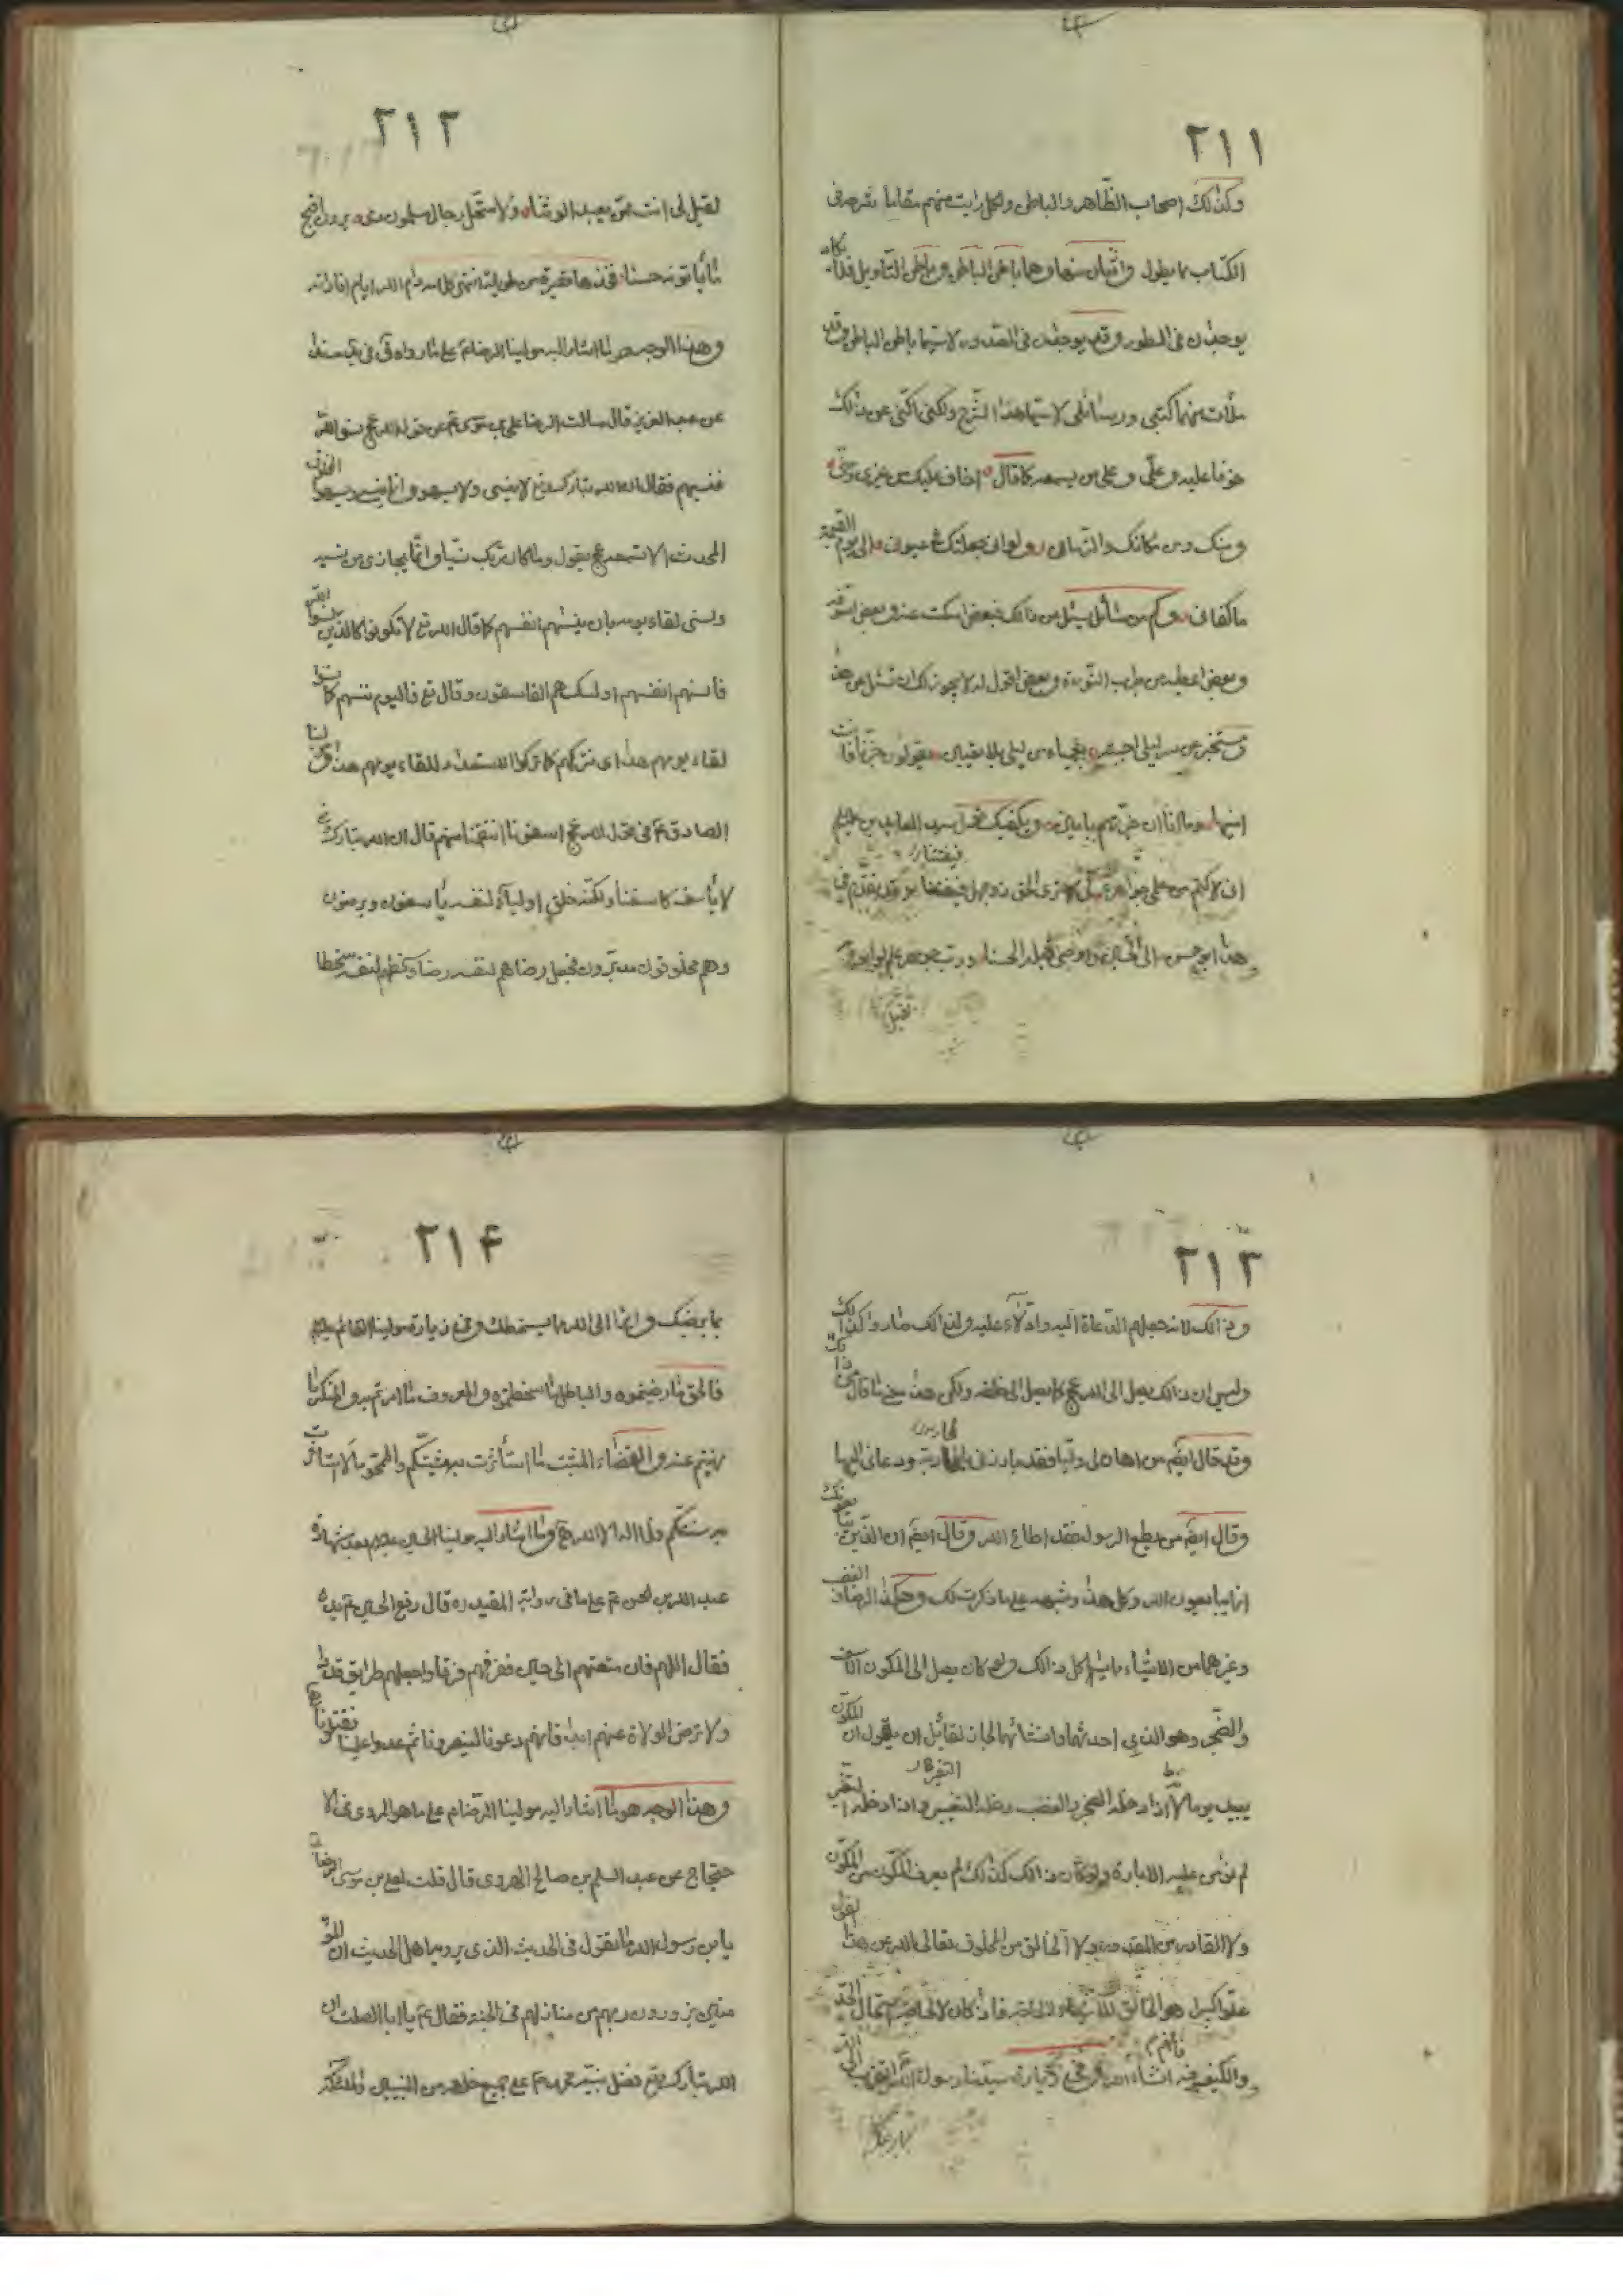 ٢١١
وكذلك اصحاب الظاهر والباطن ولكل رايت منهم مقاما شرحه فى
الكتاب مما يطول واثبات منها وهما باطن الباطن وباطن التاويل فلا يكاد
يوجدان فى السطور وقد يوجدان فى الصدور لا سيما باطن الباطن وقد
ملأت منهما كتبى ورسائلى لا سيما هذا الشرح ولكنى اكنى عن ذلك
خوفا عليه وعلى وعلى من يسمعه كما قال اخاف عليك من غيرى ومنى
ومنك ومن مكانك والزمان ولو انى جعلتك فى عيونى الى يوم القيمة
ما كفانى وكم من سائل يسئل من ذلك فبعض اسكت عنه وبعض
وبعض اعطيه من جراب النورة وبعض اقول له لا يجوز لك ان تسئل عن هذا
ومستخبر عن سر ليلى اجبته بعمياء من ليلى بلا يقين يقولون خبرنا فانت
امينها وما انا ان خبرتهم بامين ويكفيك قول سيد العابدين
انى لاكتم من علمى جواهره كى لا يرى الحق ذو جهل فيفتتنا وقد تقدم فى
هذا ابو حسن الى الحسين ووصى قبله الحسنا ورب جوهر علم لو ابوح به
لقيل
٢١٢
لقيل لى انت ممن يعبد الوثنا ولاستحل رجال مسلمون دمى يرون اقبح
ما ياتونه حسنا فخذها قصيرة من طويلة انتهى كلامه ادام الله ايام افاداته
وهذا الوجه مما اشار اليه مولينا الرضا ع على ما رواه فى مسندا
عن عبد العزيز قال سالت الرضا على بن موسى ع عن قول الله عج نسوا الله
فنسيهم فقال ان الله تبارك وتع لا ينسى ولا يسهو وانما ينسى ويسهو المخلوق
المحدث الا تسمعه عج يقول وما كان ربك نسيا وانما يجازى من نسيه
ونسى لقاء يومه بان ينسيهم انفسهم كما قال الله تع لا تكونوا كالذين نسوا الله
فأنسيهم انفسهم اولئك هم الفاسقون وقال تع فاليوم ننسيهم كما نسوا
لقاء يومهم هذا اى نتركهم كما تركوا الاستعداد للقاء يومهم هذا
الصادق ع فى قول الله عج اسفونا انتقمنا منهم قال ان الله تبارك وتع
لا يأسف كاسفنا ولكنه خلق اولياء لنفسه يأسفون ويرضون
وهم مخلوقون مدبرون فجعل رضاهم لنفسه رضا وسخطهم لنفسه سخطا
٢١٣
وذلك لانه جعلهم الدعاة اليه والادلاء عليه ولذلك صاروا كذلك
وليس ان ذلك يصل الى الله عج كما يصل الى خلقه ولكن هذا معنى ما قال من ذلك
وقد قال ايضم من اهان لى وليا فقد بارزنى بالمحاربة ودعانى اليها
وقال ايضم من يطع الرسول فقد اطاع الله وقال ايضم ان الذين يبايعونك
انما يبايعون الله وكل هذا وشبهه على ما ذكرت لك وهكذا الرضا والغضب
وغيرهما من الاشياء مما يشاكل ذلك ولو كان يصل الى المكون الاسف
والضجر وهو الذى احدثهما وانشائهما لجاز لقائل ان يقول ان المكون
يبيد يوما لانه اذا دخله الضجر والغضب دخله التغيير واذا دخله التغيير
لم يؤمن عليه الابادة ولو كان ذلك كذلك لم يعرف المكون من المكون
ولا القادر من المقدور ولا الخالق من المخلوق تعالى الله عن هذا القول
علوا كبيرا هو الخالق للاشياء لا لحاجة فاذا كان لا لحاجة استحال الحد
والكيف فيه فافهم انشاء الله وفى زيارة سيدنا رسول الله التقرب الى الله
٢١۴
بما يرضيك وابرأ الى الله مما يسخطك وفى زيارة مولينا القائم
فالحق ما رضيتموه والباطل ما اسخطتموه والمعروف ما امرتم به والمنكر ما
نهيتم عنه والقضاء المثبت ما استأثرت به مشيتكم والممحو ما لا استأثرت
به سنتكم ولا اله الا الله ومما اشار اليه مولينا الحسين بعد شهادة
عبد الله بن الحسن ع على ما فى رواية المفيد ره قال رفع الحسين ع يده
فقال اللهم فان متعتهم الى حين ففرقهم فرقا واجعلهم طرايق قددا
ولا ترض الولاة عنهم ابدا فانهم دعونا لينصرونا ثم عدوا علينا يقتلوننا
وهذا الوجه هو ما اشار اليه مولينا الرضا ع على ما هو المروى فى الا
حتجاج عن عبد السلم بن صالح الهروى قال قلت لعلى بن موسى الرضا
يابن رسول الله ما تقول فى الحديث الذى يرويه اهل الحديث ان المؤ
منين يزورون ربهم من منازلهم فى الجنة فقال ع يا ابا الصلت ان
الله تبارك وتع فضل نبيه محمد ع على جميع خلقه من النبيين والملئكة